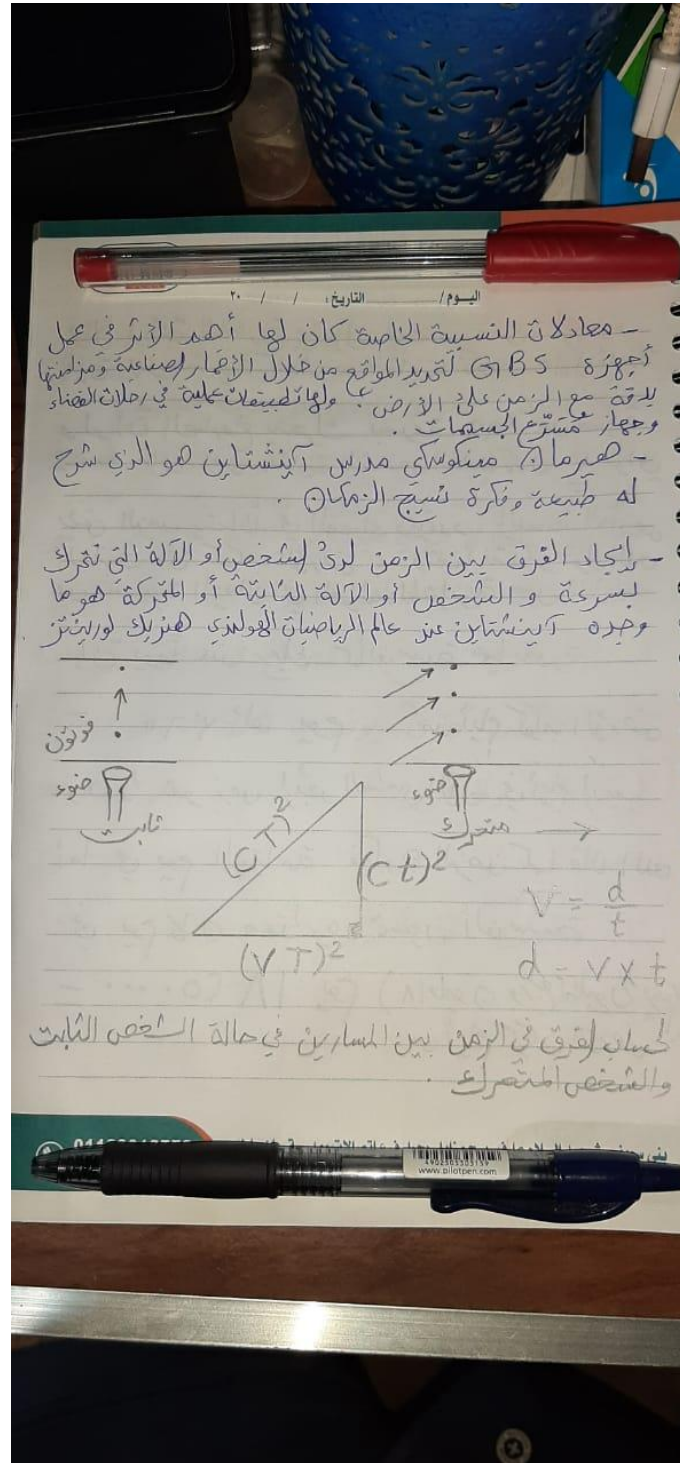 اليوم / التاريخ : / / ٢٠
- معادلات النسبية الخاصة كان لها أهم الأثر في عمل
أجهزة GBS لتحديد المواقع من خلال الأقمار الصناعية ومزامنتها
بدقة مع الزمن على الأرض، ولها تطبيقات عملية في رحلات الفضاء
وجهاز مُسَرِّع الجسيمات .
- هيرمان مينكوسكي مدرس آينشتاين هو الذي شرح
له طبيعة وفكرة نسيج الزمكان .
- إيجاد الفرق بين الزمن لدى الشخص أو الآلة التي تتحرك
بسرعة و الشخص أو الآلة الثابتة أو المتحركة هو ما
وجده آينشتاين عند عالم الرياضيات الهولندي هنريك لورينتز
فوتون
ضوء ضوء
ثابت متحرك
(CT)²
(Ct)²
(VT)²
V = d/t
d = V x t
لحساب الفرق في الزمن بين المسارين في حالة الشخص الثابت
والشخص المتحرك .
4902505303159
www.pilotpen.com